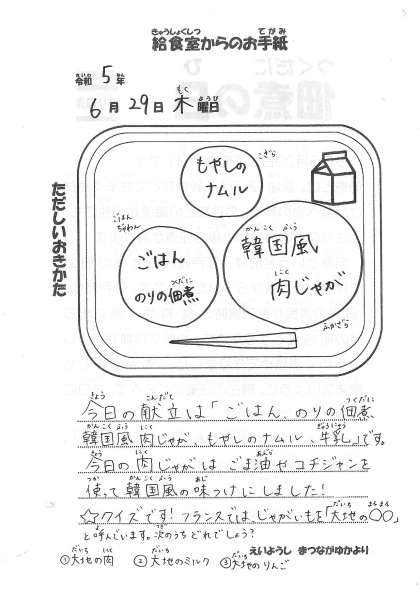 給食室からのお手紙
令和5年
6月29日木曜日
ただしいおきかた
もやしの
ナムル
こざら
ごはん
ちゃわん
ごはん
のりの佃煮
韓国風
肉じゃが
ふかざら
今日の献立は「ごはん、のりの佃煮
韓国風肉じゃが、もやしのナムル、牛乳」です。
今日の肉じゃがはごま油やコチジャンを
使って韓国風の味つけにしました!
☆クイズです!フランスでは、じゃがいもを「大地の〇〇」
と呼んでいます。次のうちどれでしょう?
①大地の肉 ②大地のミルク ③大地のりんご
えいようし まつながゆかより